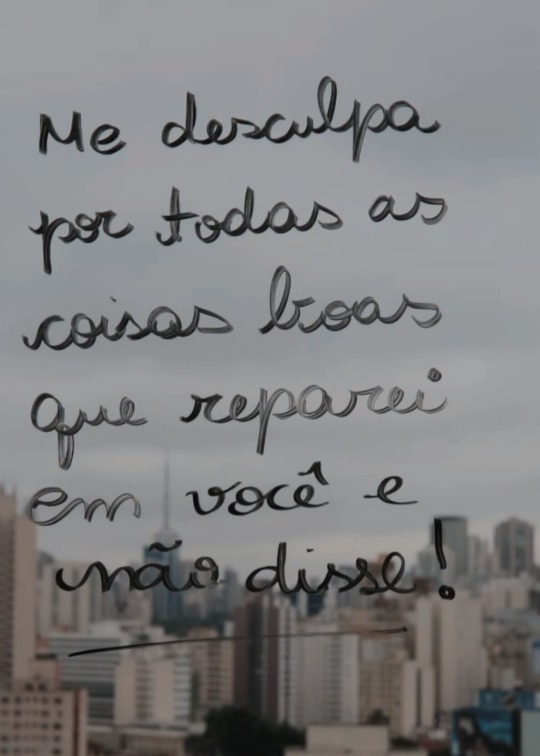 Me desculpa
por todas as
coisas boas
que reparei
em você e
não disse!